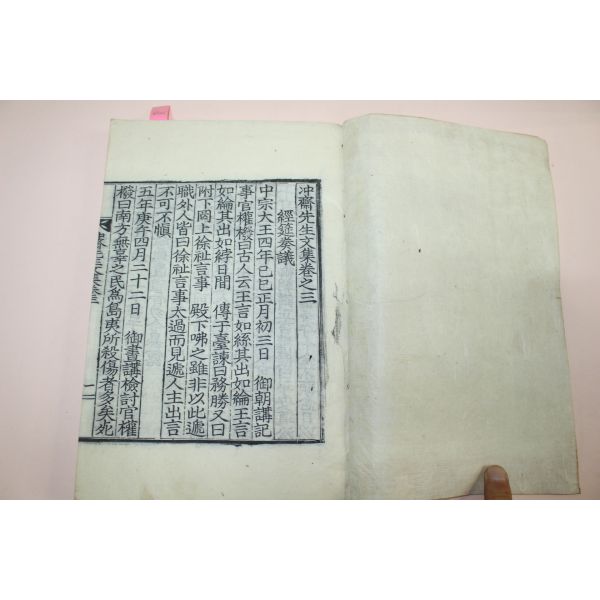 冲齋先生文集卷之三
經筵奏議
中宗大王四年己巳正月初三日 御朝講記
事官權橃曰古人云王言如絲其出如綸王言
如綸其出如綍日間 傳于臺諫曰務勝又曰
附下罔上徐祉言事 殿下咈之雖非以此遞
職外人皆曰徐祉言事太過而見遞人主出言
不可不愼
五年庚午四月二十二日 御晝講檢討官權
橃曰南方無辜之民爲島夷所殺傷者多矣